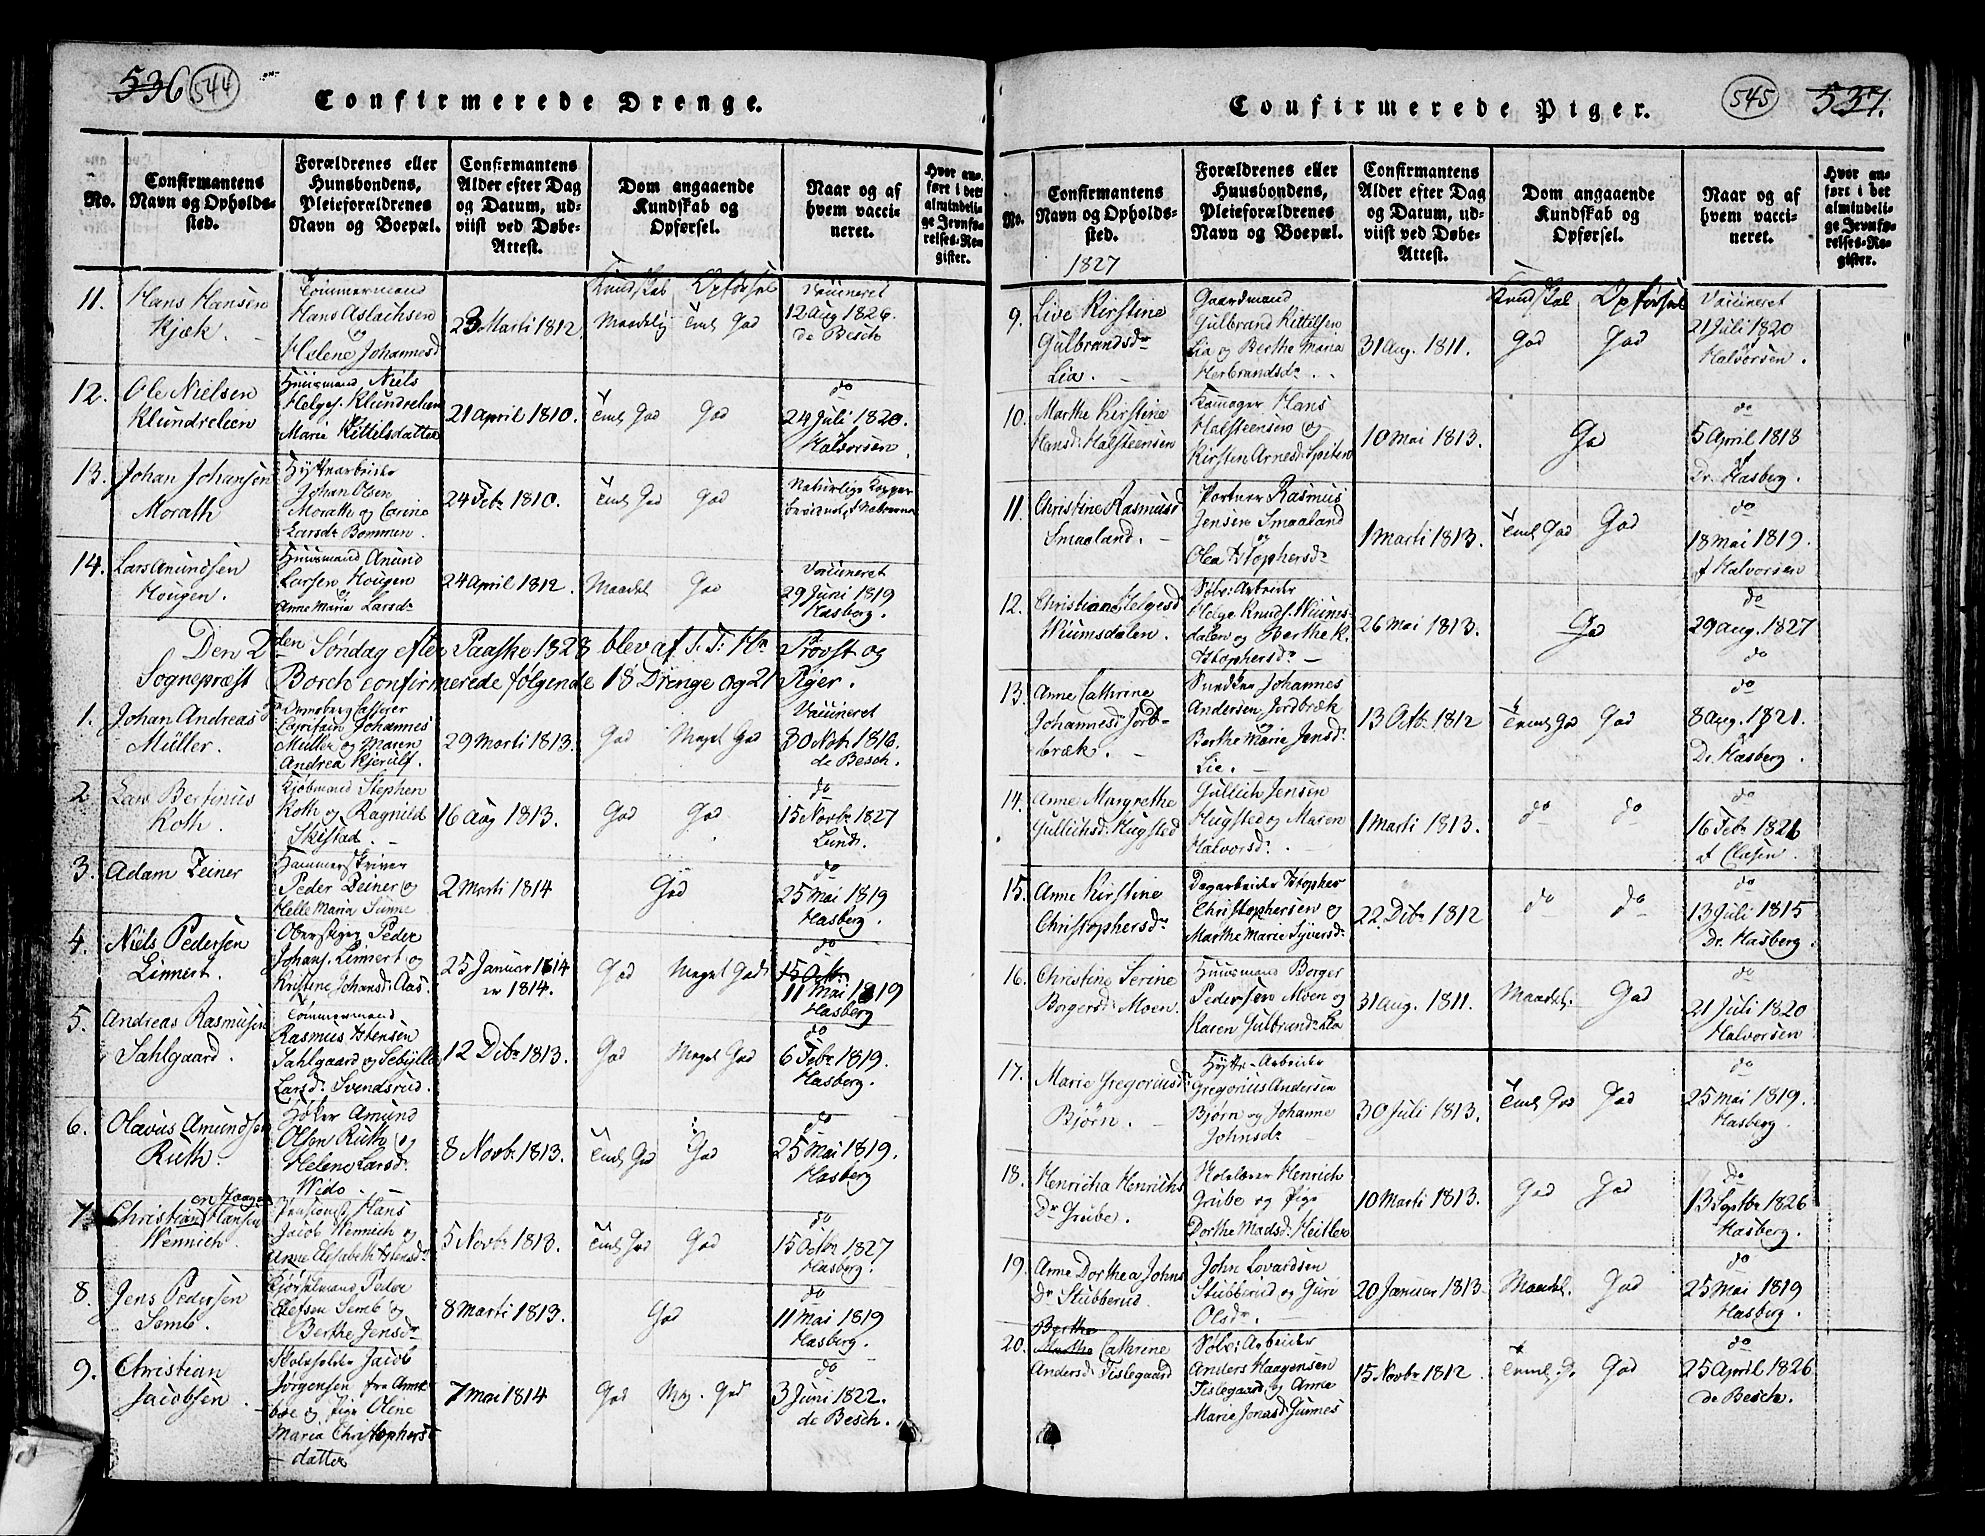 536 544
Confirmerede Drenge.
No.
Confirmantens
Navn og Opholds-
sted.
Forældrenes eller
Huusbondens,
Pleieforældrenes
Navn og Boepæl.
Confirmantens
Alder efter Dag
og Datum, ud-
viist ved Døbe-
Attest.
Dom angaaende
Kundskab og
Opførsel.
Naar og af
hvem vacci-
neret.
Hvor an-
ført i det
almindeli-
ge Jevnfø-
relses-Re-
gister.
11.
Hans Hansen
Kjæk.
Tømmermand
Hans Aslachsen
og
Helene Johannesd
23 Marti 1812.
Kundskab Opførsel
Maadelig Teml. God
Vaccineret
12 Aug 1826.
de Besch
12.
Ole Nielsen
Klundrelien
Huusmand Niels
Helges. Klundrelien
Marie Kittelsdatter
21 April 1810.
Teml God God
do
24 Juli 1820.
Halvorsen.
13.
Johan Johansen
Morath
Hyttearbeider
Johan Olsen
Morath og Carine
Larsdr Bommen.
24 Febr 1810.
Teml God God
Naturlige Kopper
14.
Lars Amundsen
Hougen.
Huusmand Amund
Larsen Hougen
og
Anne Maria Larsdr
24 April 1812.
Maadel God
Vaccineret
29 Juni 1819
Hasberg.
Den 2den Søndag efter Paaske 1828 blev af S. T. Hr Provst og
Sognepræst Borch confirmerede følgende 18 Drenge og 21 Piger.
1.
Johan Andreas
Müller.
Capitain Johannes
Müller og Maren
Andrea Kjerulf.
29 Marti 1813.
God Meget God
Vaccineret
30 Nov. 1816.
de Besch.
2
Lars Bertinus
Roth.
Kjøbmand Stephen
Roth og Ragnild
Skistad.
16 Aug 1813.
God God
do
15 Novbr 1827
Lund.
3.
Adam Zeiner
Hammerskriver
Peder Zeiner og
Helle Maria Sünne
2 Marti 1814
God
do
25 Mai 1819
Hasberg.
4.
Niels Pedersen
Linnert.
Oberstiger Peder
Johans. Linnert og
Kristine Johansd: Aas.
25 Januar 1814
er 1814.
God Meget God
do
15 Octbr
11 Mai 1819
Hasberg
5.
Andreas Rasmusen
Sahlgaard.
Tømmermand
Rasmus Istensen
Sahlgaard og Sebylle
Larsdr Svendsrud.
12 Debr 1813.
God Meget God
do
6 Febr 1819.
Hasberg.
6.
Olavus Amundsen
Ruth.
Høker Amund
Olsen Ruth og
Helene Larsdr
Wido.
8 Novbr 1813.
Teml God God
do
25 Mai 1819.
Hasberg
7.
Christian Hansen
Wennich.
Hans
Jacob Wennich og
Anne Elisabeth Istensdr
5 Novbr 1813.
Teml God God
do
15 Octbr 1827
Hasberg.
8.
Jens Pedersen
Semb.
Kjørselmand Peder
Olefsen Semb og
Berthe Jensdr
8 Marti 1813.
God
do
11 Mai 1819
Hasberg.
9.
Christian
Jacobsen
Skoleholder Jacob
Jørgensen
og Pige Olene
Maria Christophers
datter
7 Mai 1814
God Meg. God
do
3 Juni 1822.
de Besch.
Confirmerede Piger.
545 537.
No.
Confirmantens
Navn og Opholds-
sted.
1827
Forældrenes eller
Huusbondens,
Pleieforældrenes
Navn og Boepæl.
Confirmantens
Alder efter Dag
og Datum, ud-
viist ved Døbe-
Attest.
Dom angaaende
Kundskab og
Opførsel.
Naar og af
hvem vacci-
neret.
Hvor an-
ført i det
almindeli-
ge Jevnfø-
relses-Re-
gister.
9.
Live Kirstine
Gulbrandsdr
Lia.
Gaardmand
Gulbrand Kittelsen
Lia og Berthe Maria
Herbrandsdr.
31 Aug. 1811.
Kundskab Opførsel
God God
Vaccineret
21 Juli 1820
Halvorsen.
10.
Marthe Kirstine
Hansdr Halsteensen
Hans
Halsteensen og
Kirsten Arnesd:
10 Mai 1813.
God
do
5 April 1818
Dr. Hasberg.
11.
Christine Rasmusd
Smaaland.
Portner Rasmus
Jensen Smaaland
og
Olea Xstophersdr
1 Marti 1813.
Teml God God
do
18 Mai 1819.
af Halvorsen
12.
Christiane Helgesd
Wiumsdalen.
Sølv: Arbeider
Helge Knuds. Wiums-
dalen og Berthe K.
Xstophersdr
26 Mai 1813.
God
do
29 Aug. 1827
do
13.
Anne Cathrine
Johannesdr Jord-
bræk.
Johannes
Andersen Jordbræk
og
Berthe Marie Jensdr
Lie.
13 Octbr 1812
Teml God God
do
8 Aug. 1821.
Dr. Hasberg.
14.
Anne Margrethe
Gullichsdr Hugsted
Gullich Jensen
Hugsted og Maren
Halvorsdr.
1 Marti 1813.
do do
do
16 Febr 1826
af Clasen.
15.
Anne Kirstine
Christophersdr
Dagarbeider Xstopher
Christophersen og
Marthe Marie Syversdr
22 Debr 1812
do do
do
13 Juli 1815
Dr. Hasberg.
16.
Christine Serine
Borgersdr Moen.
Huusmand Borger
Pedersen Moen og
Karen Gulbrandsdr Lia
31 Aug. 1811.
Maadel. God
do
21 Juli 1820
Halvorsen
17.
Marie Gregoriusdr
Bjørn.
Hytte-Arbeider
Gregorius Andersen
Bjørn og Johanne
Johnsdr
30 Juli 1813.
Teml God God
do
25 Mai 1819.
Hasberg.
18.
Henricha Henrichs
Dr Grube.
Henrich
Grube og Pige
Dorthe Madsdr Heitler
10 Marti 1813.
God God
do
13 Septbr 1826
Hasberg.
19.
Anne Dorthea Johns
Dr Stubberud.
John Lovardsen
Stubberud og Guri
Olsdr.
20 Januar 1813.
Maadel. God
do
25 Mai 1819
Hasberg.
20.
Berthe
Marthe Cathrine
Andersdr Tislegaard
Sølv: Arbeider
Anders Haagensen
Tislegaard og Anne
Marie Jonasd Gunnes
15 Novbr 1812.
Teml G. God
do
25 April 1826
de Besch.